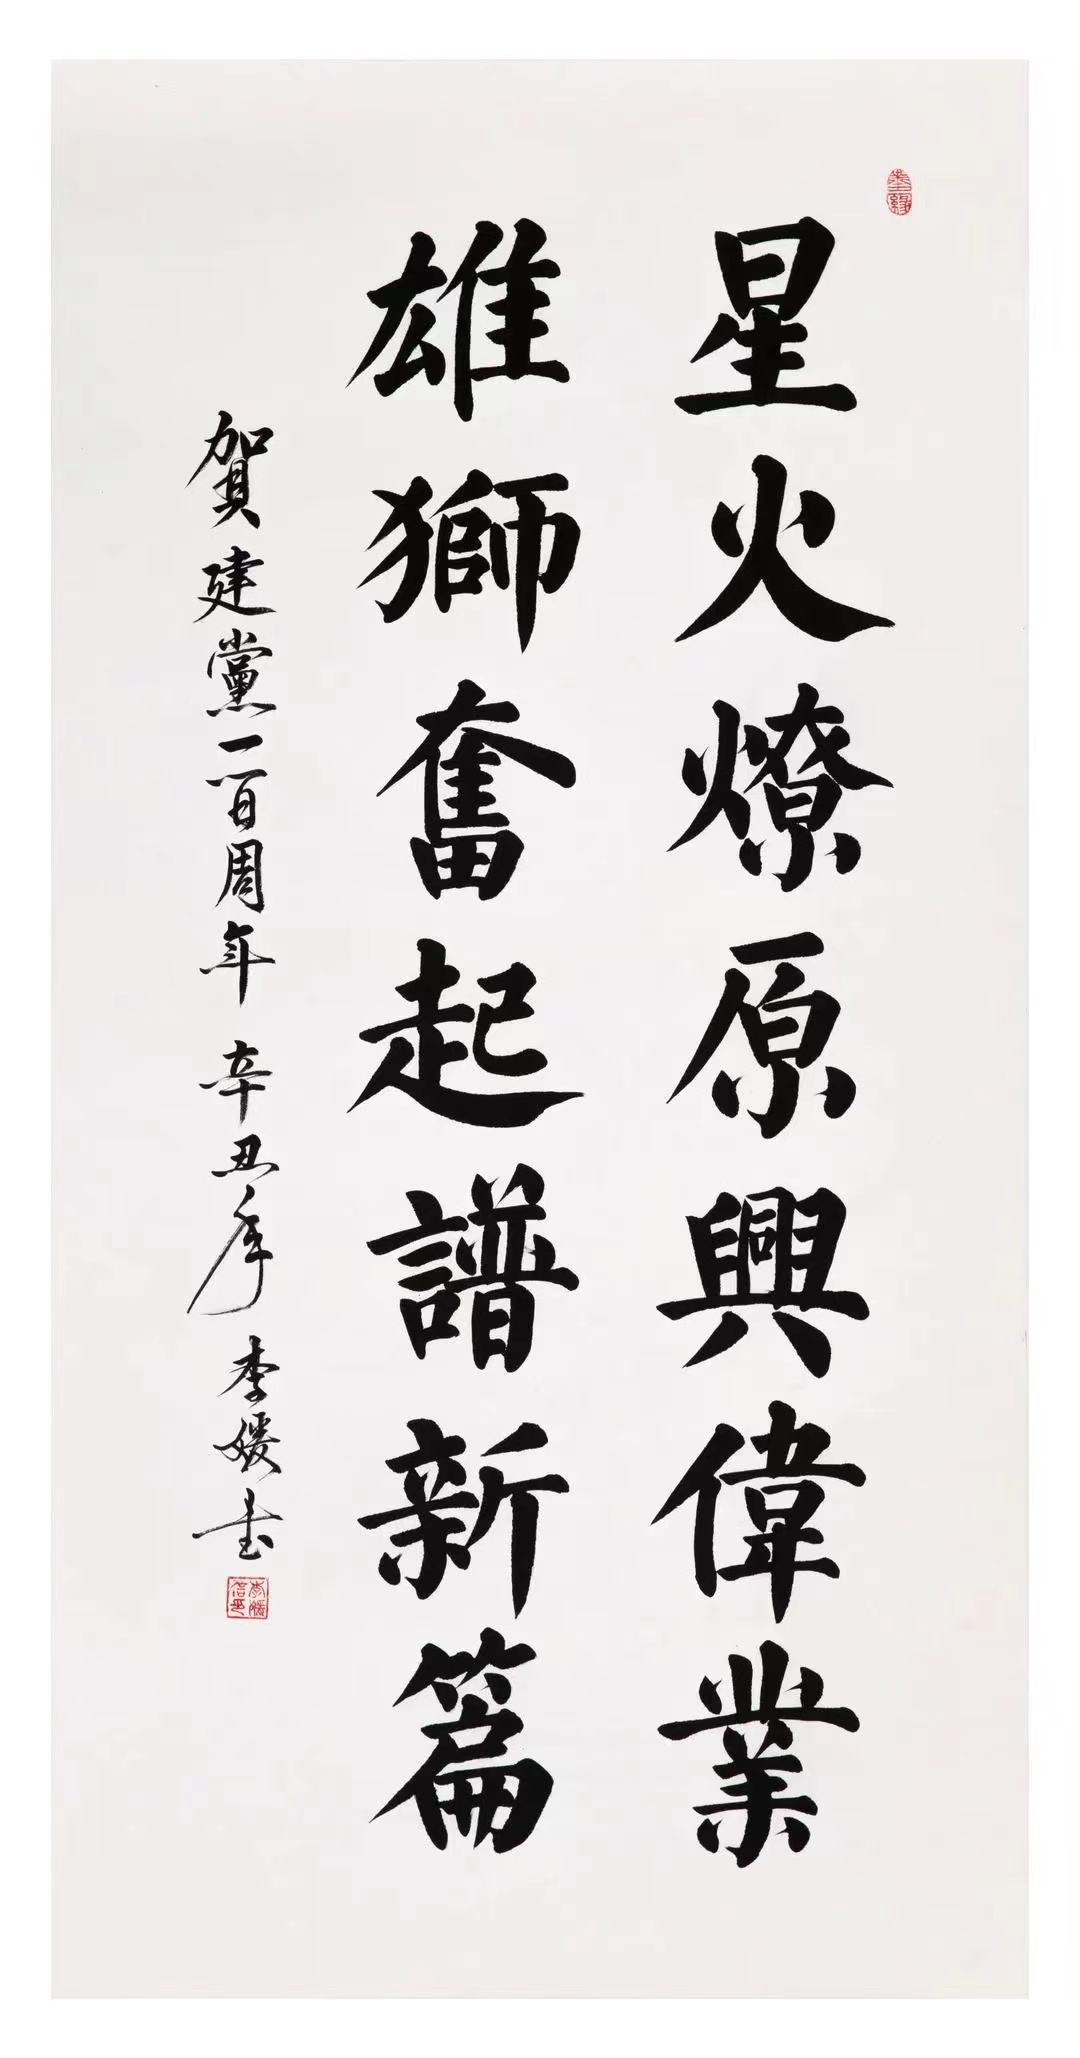 星火燎原興偉業
雄獅奮起譜新篇
賀建黨一百周年 辛丑年 李媛书